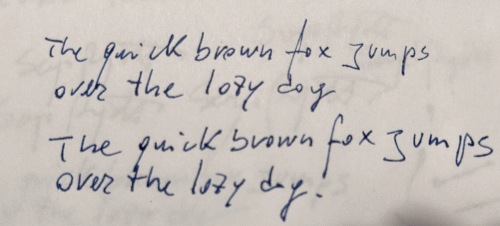 The quick brown fox jumps
over the lazy dog
The quick brown fox jumps
over the lazy dog.